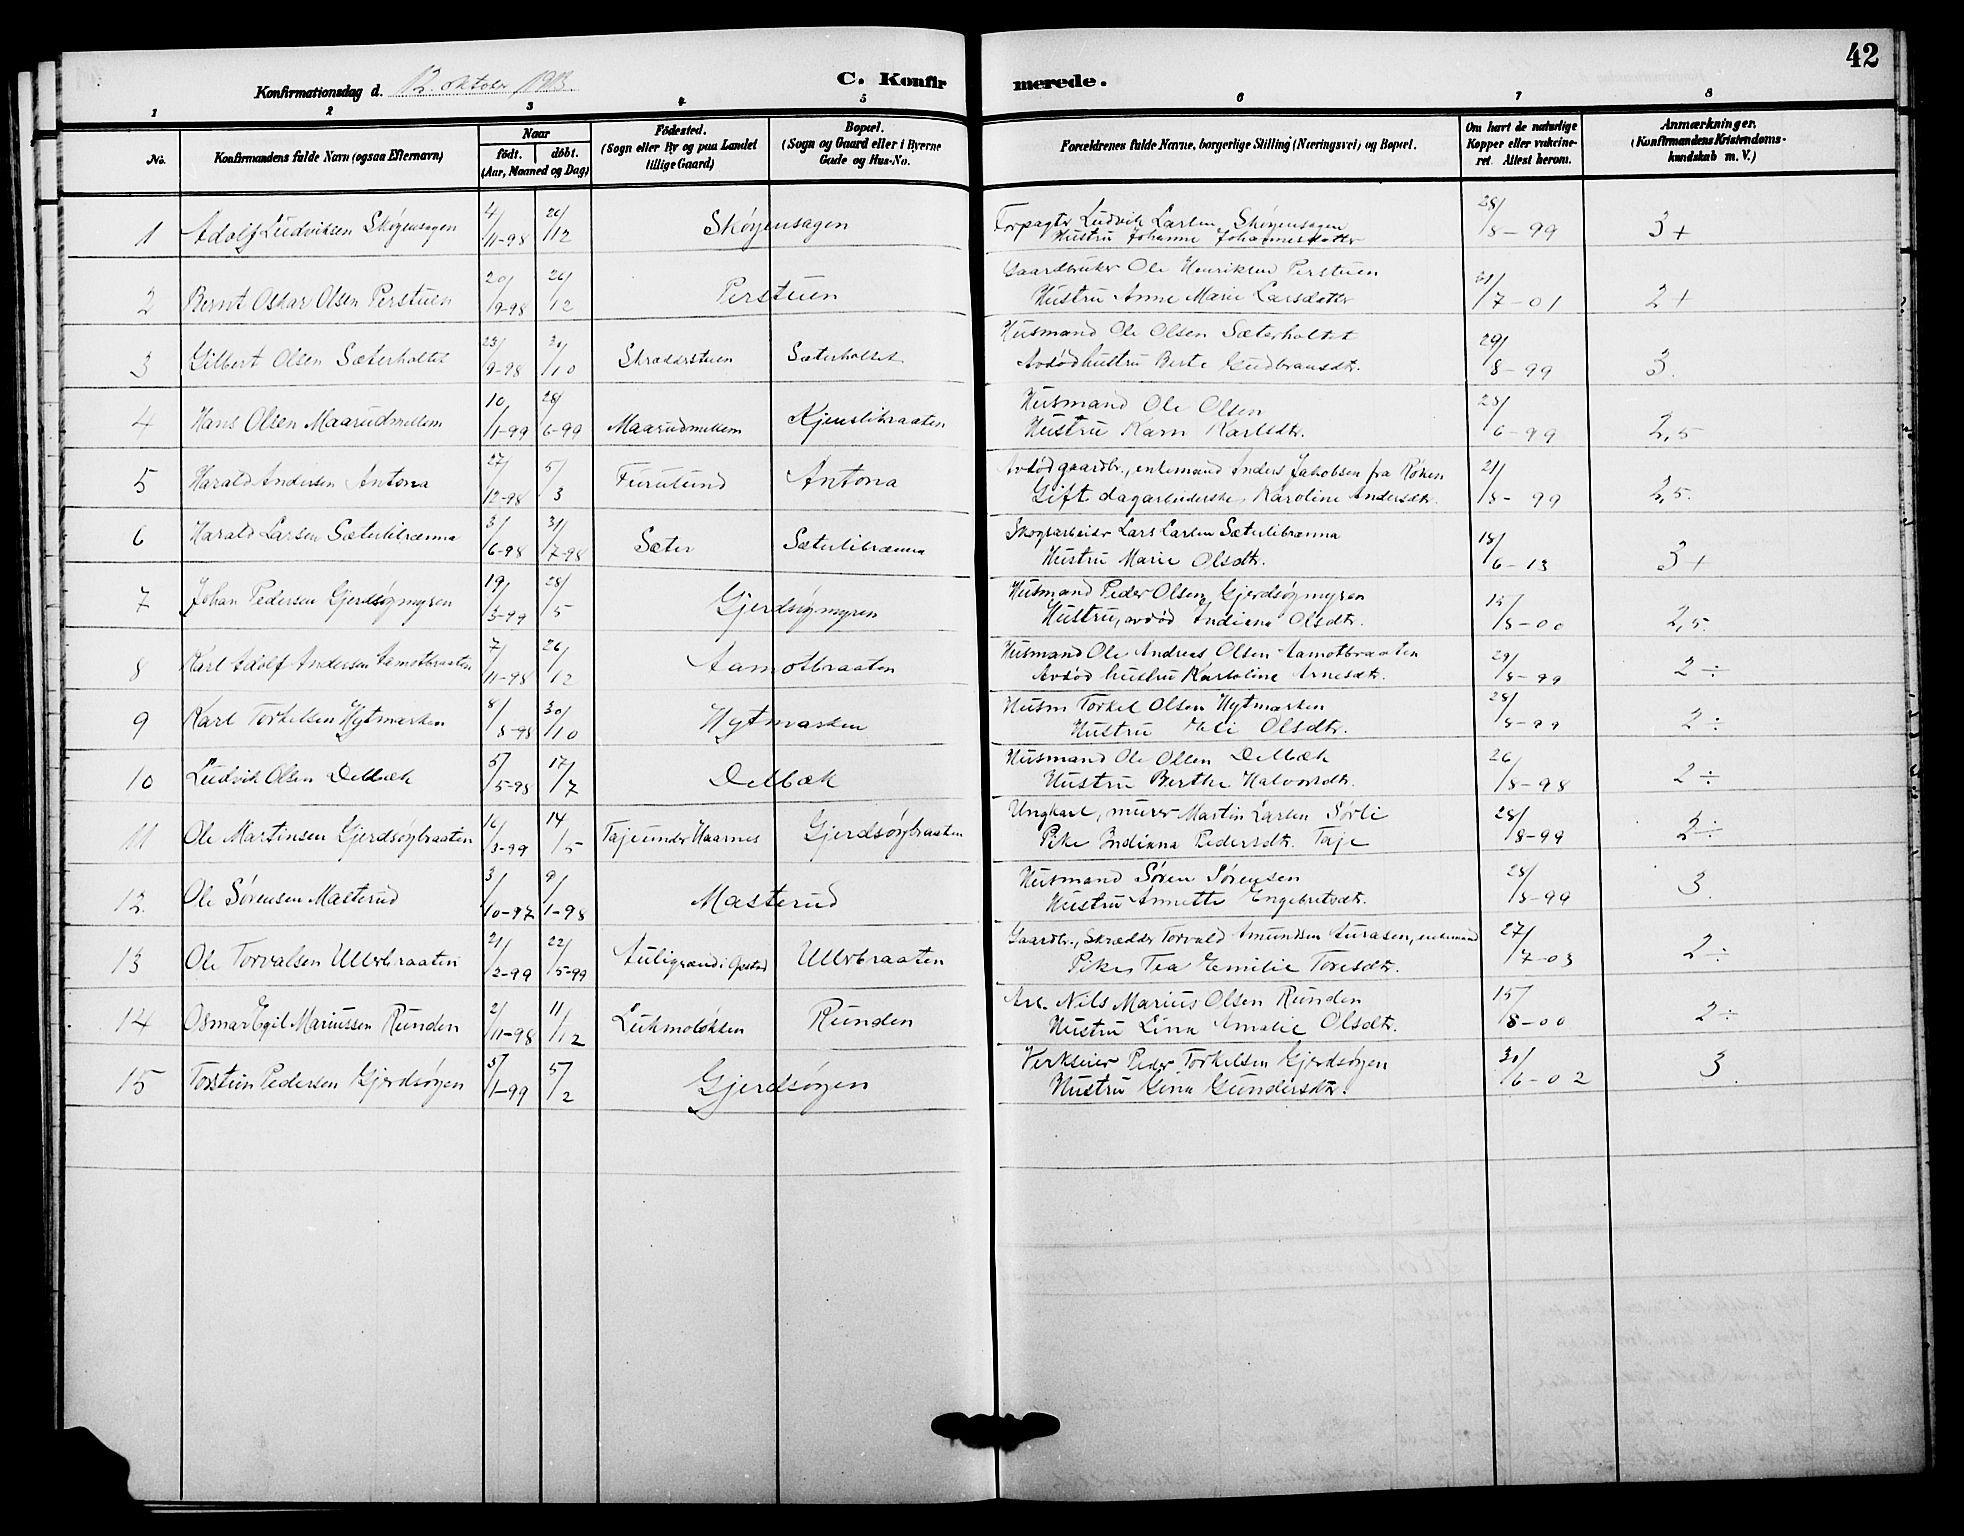 42
Konfirmationsdag d. 12. oktober 1913.
C. Konfirmerede.
1 2 3 4 5 6 7 8
No.
Konfirmandens fulde Navn (ogsaa Efternavn)
Naar
født. døbt.
(Aar, Maaned og Dag)
Fødested.
(Sogn eller By og paa Landet
tillige Gaard)
Bopæl.
(Sogn og Gaard eller i Byerne
Gade og Hus-No.
Forældrenes fulde Navne, borgerlige Stilling (Næringsvei) og Bopæl.
Om havt de naturlige
Kopper eller vakcine-
ret. Attest herom.
Anmærkninger.
(Konfirmandens Kristendoms-
kundskab m. V.)
1 Adolf Ludviksen Skøyensagen 4/11-98 26/12 Skøyensagen Forpagter Ludvik Larsen Skøyensagen 28/8-99 3+
Hustru Johanne Johannesdatter
2 Bernt Oskar Olsen Perstuen 20/9-98 26/12 Perstuen Gaardbruker Ole Henriksen Perstuen 31/7-01 2+
Hustru Anne Marie Larsdatter
3 Gilbert Olsen Sæterholtet 23/9-98 30/10 Skrædderstuen Sæterholtet Husmand Ole Olsen Sæterholtet 29/8-99 3.
Avdød hustru Berte Gudbransdtr.
4 Hans Olsen Maarudmellem 10/1-99 28/6-99 Maarudmellem Kjenslibraaten Husmand Ole Olsen 28/6-99 2,5
Hustru Karn Karlsdtr.
5 Harald Andersen Antona 27/12-98 5/3 Furulund Antona Avdød gaardbr., enkemand Anders Jakobsen fra Røken 21/8-99 2,5.
Gift dagarbeiderske Karoline Andersdtr.
6 Harald Larsen Sæterlibrænna 3/6-98 31/7-98 Sæter Sæterlibrænna Skogsarbeider Lars Larsen Sæterlibrænna 18/6-13 3+
Hustru Marie Olsdtr.
7 Johan Pedersen Gjerdsøgmyren 19/3-99 28/5 Gjerdsøgmyren Husmand Peder Olsen Gjerdsøgmyren 15/8-00 2,5.
Hustru, avdød Indiana Olsdtr.
8 Karl Adolf Andersen Aamotbraaten 7/11-98 26/12 Aamotbraaten Husmand Ole Andreas Olsen Aamotbraaten 29/8-99 2÷
Avdød hustru Karoline Arnesdtr.
9 Karl Torkelsen Hytmarken 8/8-98 30/10 Hytmarken Husm Torkel Olsen Hytmarken 28/8-99 2÷
Hustru Eli Olsdtr.
10 Ludvik Olsen Delbæk 5/5-98 17/7 Delbæk Husmand Ole Olsen Delbæk 26/8-98 2÷
Hustru Berthe Halvorsdtr.
11 Ole Martinsen Gjerdsøgbraaten 16/3-99 14/5 Taje under Haarnes Gjerdsøgbraaten Ungkarl, murer Martin Larsen Sørli 28/8-99 2÷
Pike Indiana Pedersdtr. Taje
12. Ole Sørensen Masterud 3/10-97 9/1-98 Masterud Husmand Søren Sørensen 28/8-99 3.
Hustru Annette Engebretsdtr.
13 Ole Torvalsen Ullerbraaten 21/2-99 22/5-99 Auligrænd i Opstad Ullerbraaten Gaardbr., Skrædder Torvald Amundsen Aurasen, enkemand 27/7-03 2÷
Pike, Tea Emilie Toresdtr.
14 Osmar Egil Mariussen Runden 2/11-98 11/12 Lukmoløkken Runden Arb. Nils Marius Olsen Runden 15/8-00 2÷
Hustru Lina Amalie Olsdtr.
15 Torstein Pedersen Gjerdsøgen 5/1-99 5/2 Gjerdsøgen Verkseier Peder Torkelsen Gjerdsøgen 30/6-02 3.
Hustru Gina Gundersdtr.